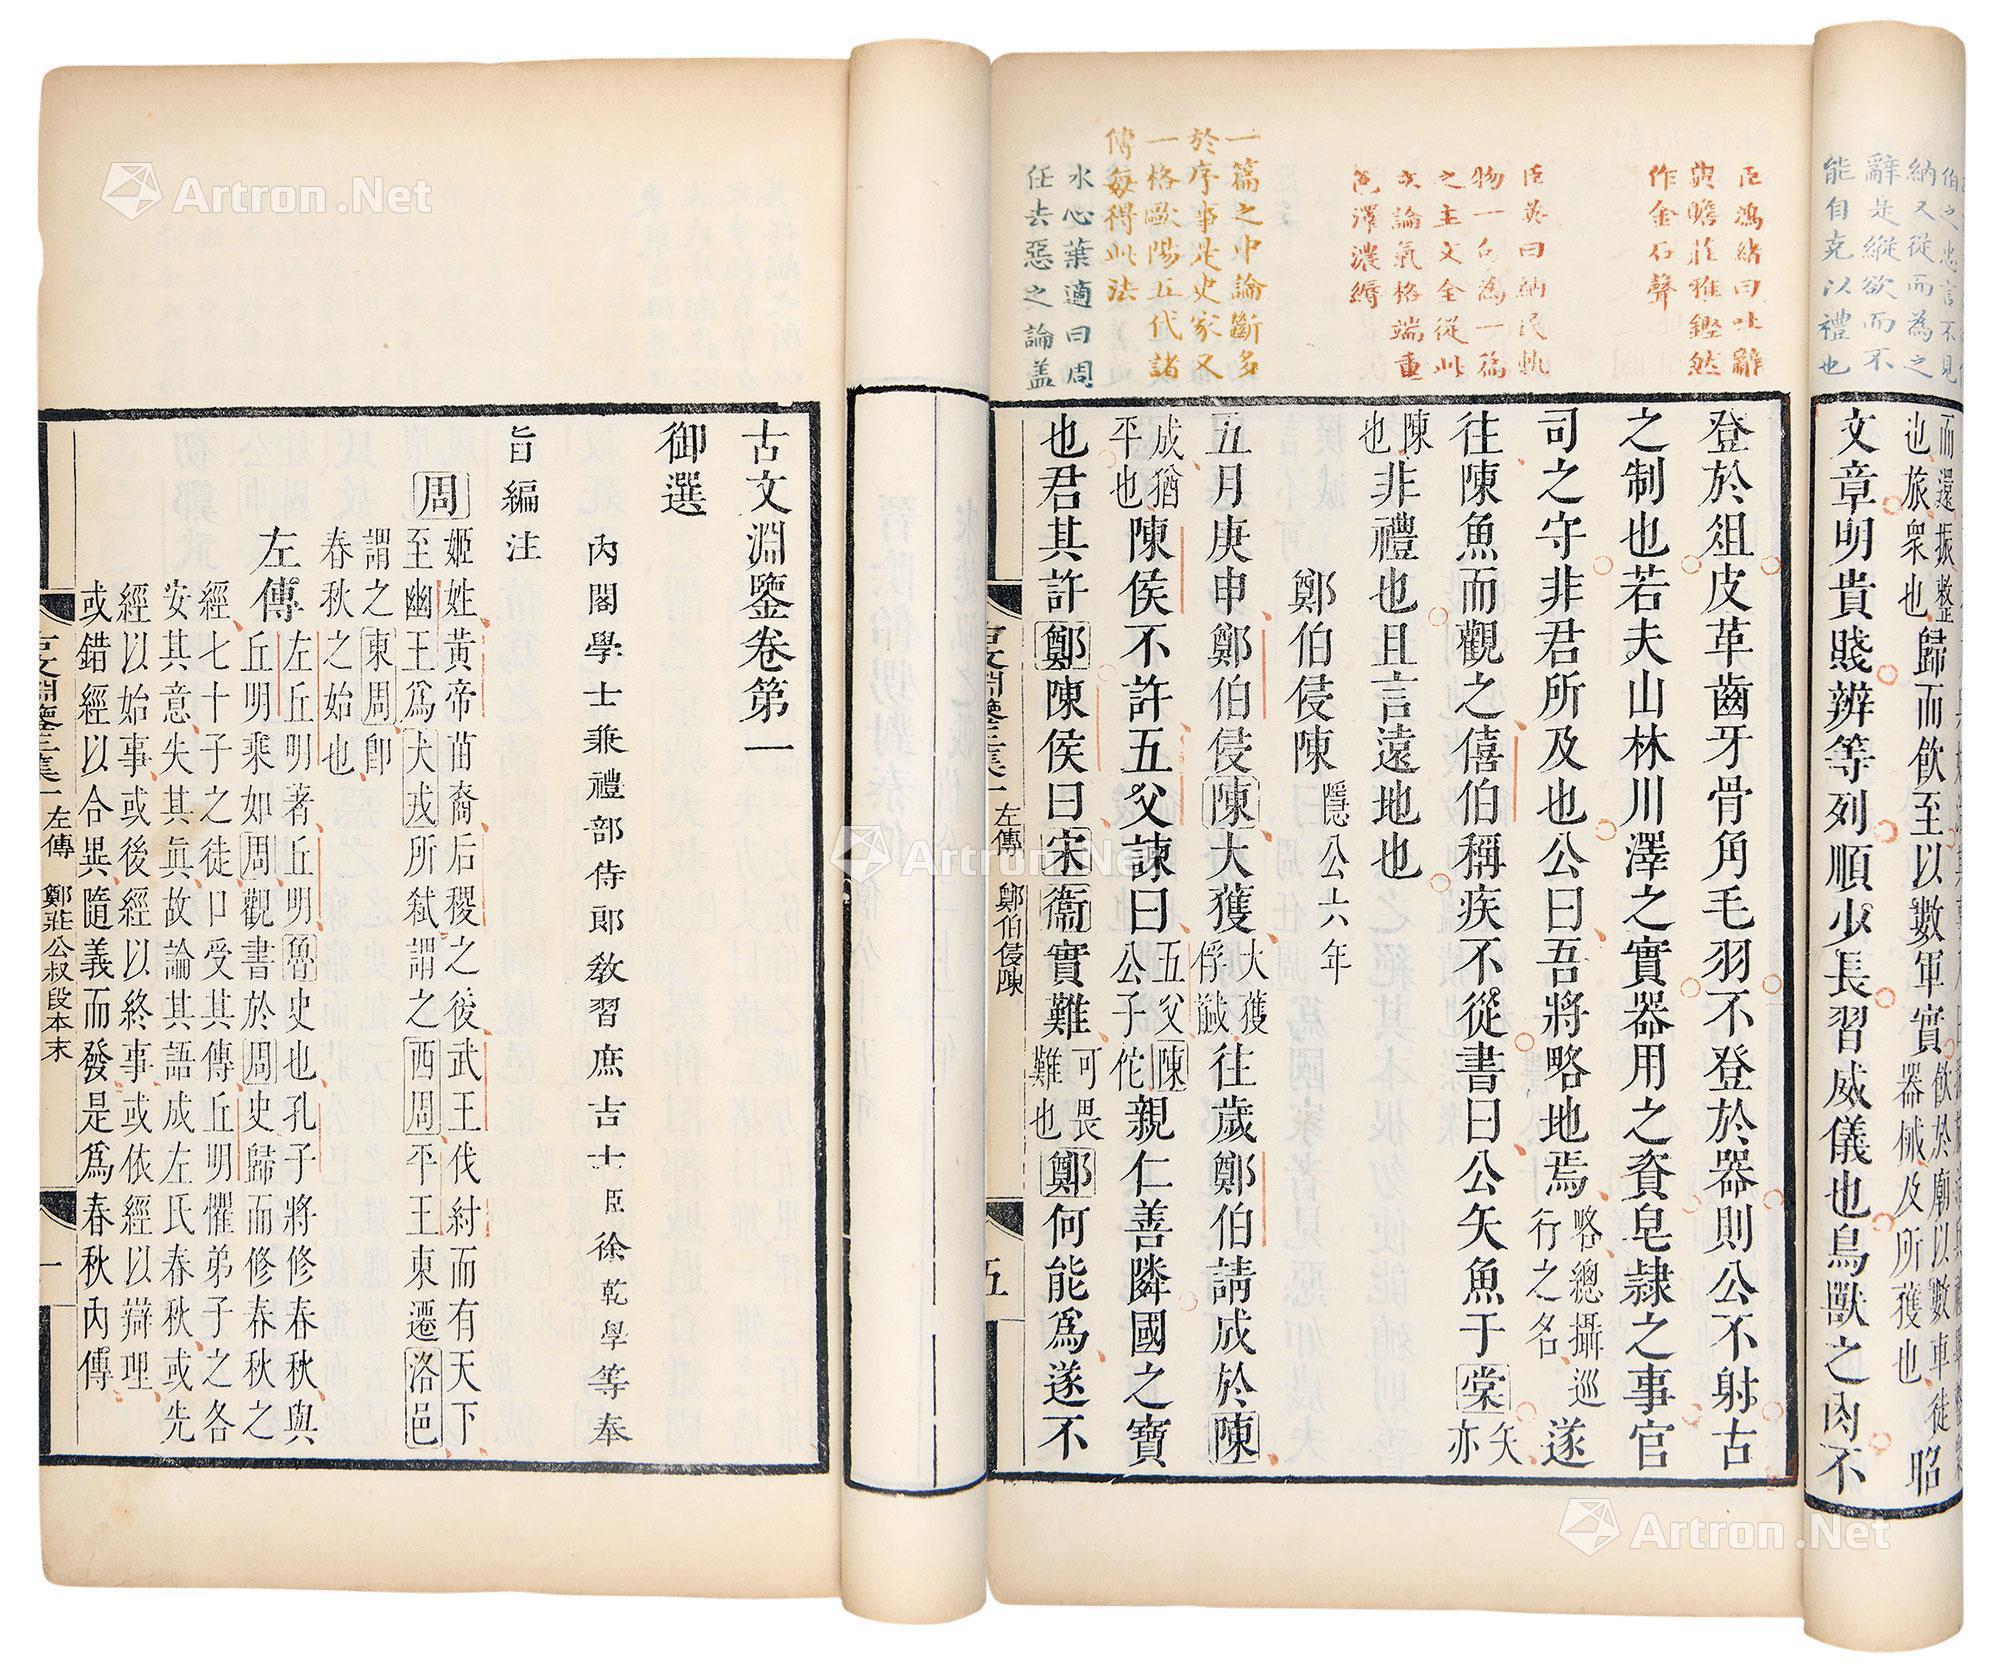 能自克以禮也
辭是縱欲而不
納又從而為之
伯之忠言不見
而還振整
也旅衆也
歸而飲至以數軍實
飲於廟以數車徒
器械及所獲也
昭
文章明貴賤辨等列順少長習威儀也鳥獸之肉不
臣鴻緒曰吐辭
典贍莊雅鏗然
作金石聲
臣英曰納民軌
物一句為一篇
之主文全從此
立論氣格端重
色澤濃縟
一篇之中論斷多
於序事是史家又
一格歐陽五代諸
傳每得此法
水心葉適曰周
任去惡之論蓋
登於俎皮革齒牙骨角毛羽不登於器則公不射古
之制也若夫山林川澤之實器用之資皂隸之事官
司之守非君所及也公曰吾將略地焉
略總攝巡
行之名
遂
往陳魚而觀之僖伯稱疾不從書曰公矢魚于棠
矢
亦
陳
也
非禮也且言遠地也
鄭伯侵陳 隱公六年
五月庚申鄭伯侵陳大獲
大獲
俘馘
往歲鄭伯請成於陳
成猶
平也
陳侯不許五父諫曰
五父陳
公子佗
親仁善隣國之寶
也君其許鄭陳侯曰宋衞實難
可畏
難也
鄭何能爲遂不
古文淵鑒三集一 左傳 鄭伯侵陳 五
古文淵鑒卷第一
御選
內閣學士兼禮部侍郎教習庶吉士臣徐乾學等奉
旨編注
周
姬姓黃帝苗裔后稷之後武王伐紂而有天下
至幽王爲犬戎所弑謂之西周平王東遷洛邑
謂之東周卽
春秋之始也
左傳
左丘明著丘明魯史也孔子將修春秋與
丘明乘如周觀書於周史歸而修春秋之
經七十子之徒口受其傳丘明懼弟子之各
安其意失其眞故論其語成左氏春秋或先
經以始事或後經以終事或依經以辯理
或錯經以合異隨義而發是爲春秋內傳
古文淵鑒三集一 左傳 鄭莊公叔段本末 一
Artron.Net
Artron.Net
Artron.Net